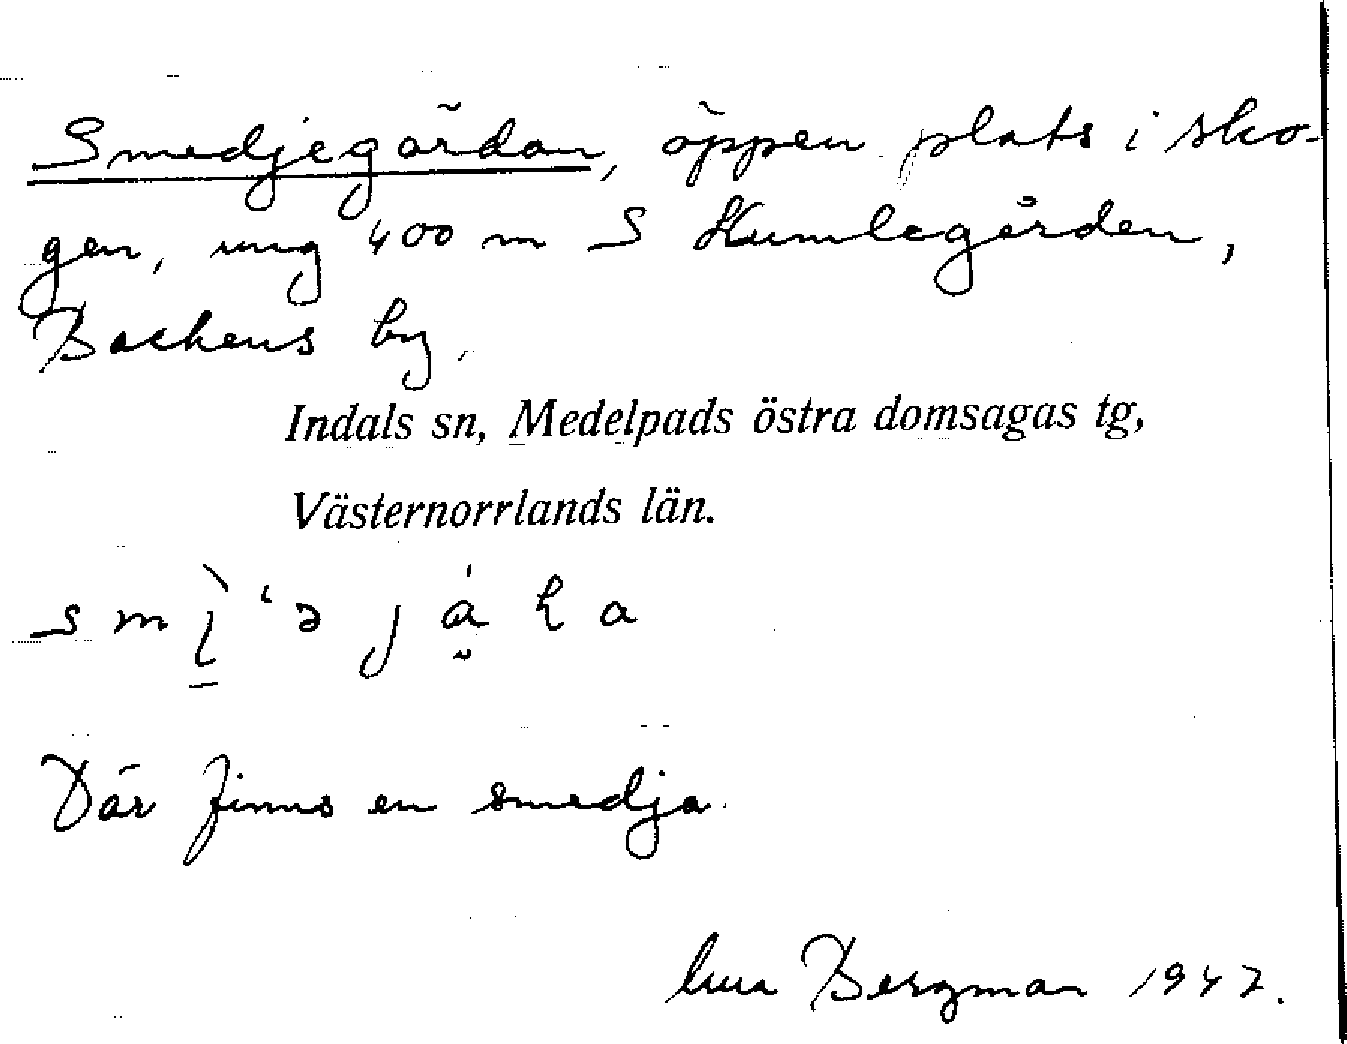 Smedjegärdan, öppen plats i sko-
gen, ung 400 m S Kumlegården,
Backens by.
Indals sn, Medelpads östra domsagas tg,
Västernorrlands län.
Där finns en smedja.
Bergman 1947.